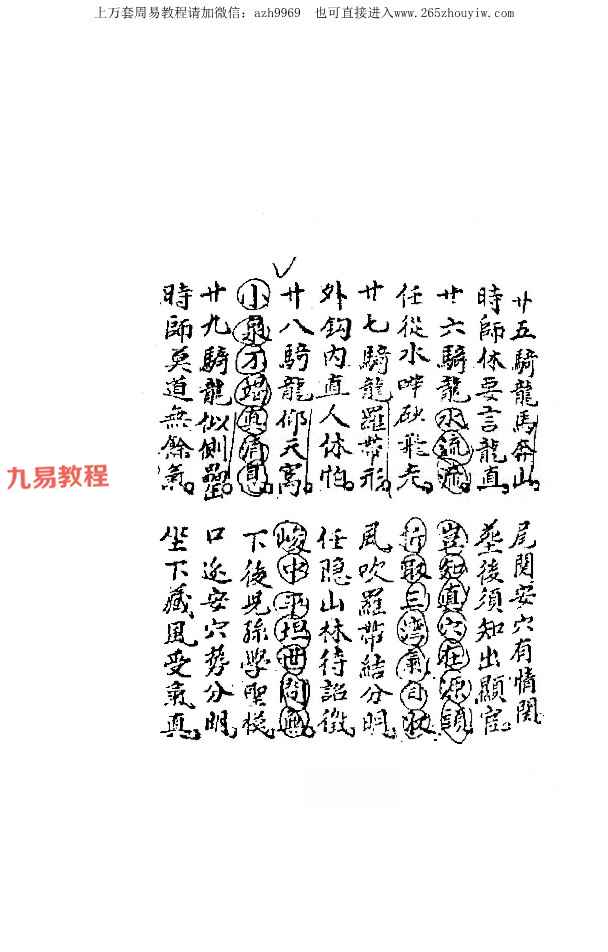 上万套周易教程请加微信：azh9969 也可直接进入www.265zhouyiw.com
廿五騎龍馬奔山 尾閭安穴有情関
時師休要言龍直 塟後須知出顯宦
廿六騎龍水流流 豈知真穴在源頭
任從水 砂飛走 折取三湾氣自收
廿七騎龍羅帶形 風吹羅帶結分明
外鈎内直人休怕 任隐山林待詔徴
廿八騎龍仰天窝 峻中平坦世間無
小 才 真消息 下後児孫學聖模
廿九騎龍似側壘 口边安穴葬分明
時師莫道無餘氣 坐下藏風受氣真
九易教程